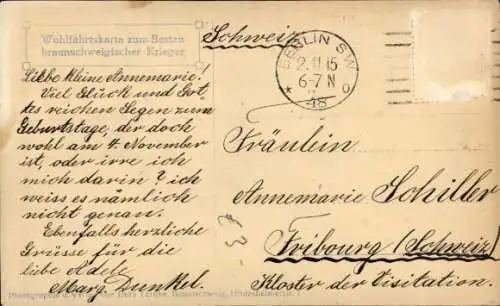 Wohlfahrtskarte zum Besten
braunschweigischer Krieger
Schweiz
BERLIN SW
2.11.15
6-7 N
* 48
Liebe kleine Annemarie!
Viel Glück und Got-
tes reichen Segen zum
Geburtstage, der doch
wohl am 4. November
ist, oder irre ich
mich darin? ich
weiss es nämlich
nicht genau.
Ebenfalls herzliche
Grüsse für die
liebe Adele
Marg. Dunkel.
Fräulein
Annemarie Schiller
Fribourg (Schweiz)
Kloster der Visitation.